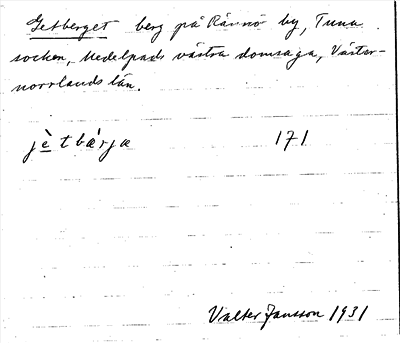 Getberget berg på Rännö by, Tuna
socken, Medelpads västra domsaga, Väster-
norrlands län.
jè̱tbæ̀rjæ 171
Valter Jansson 1931